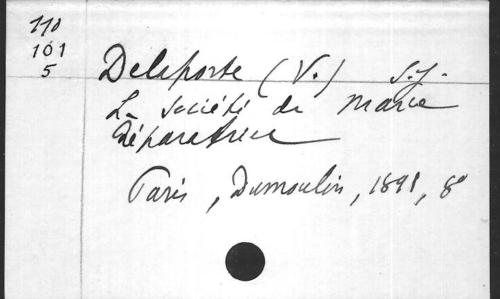 110
101
5
Delaporte (V.) S.J.
La Société de Marie
Réparatrice
Paris, Dumoulin, 1891, 8°